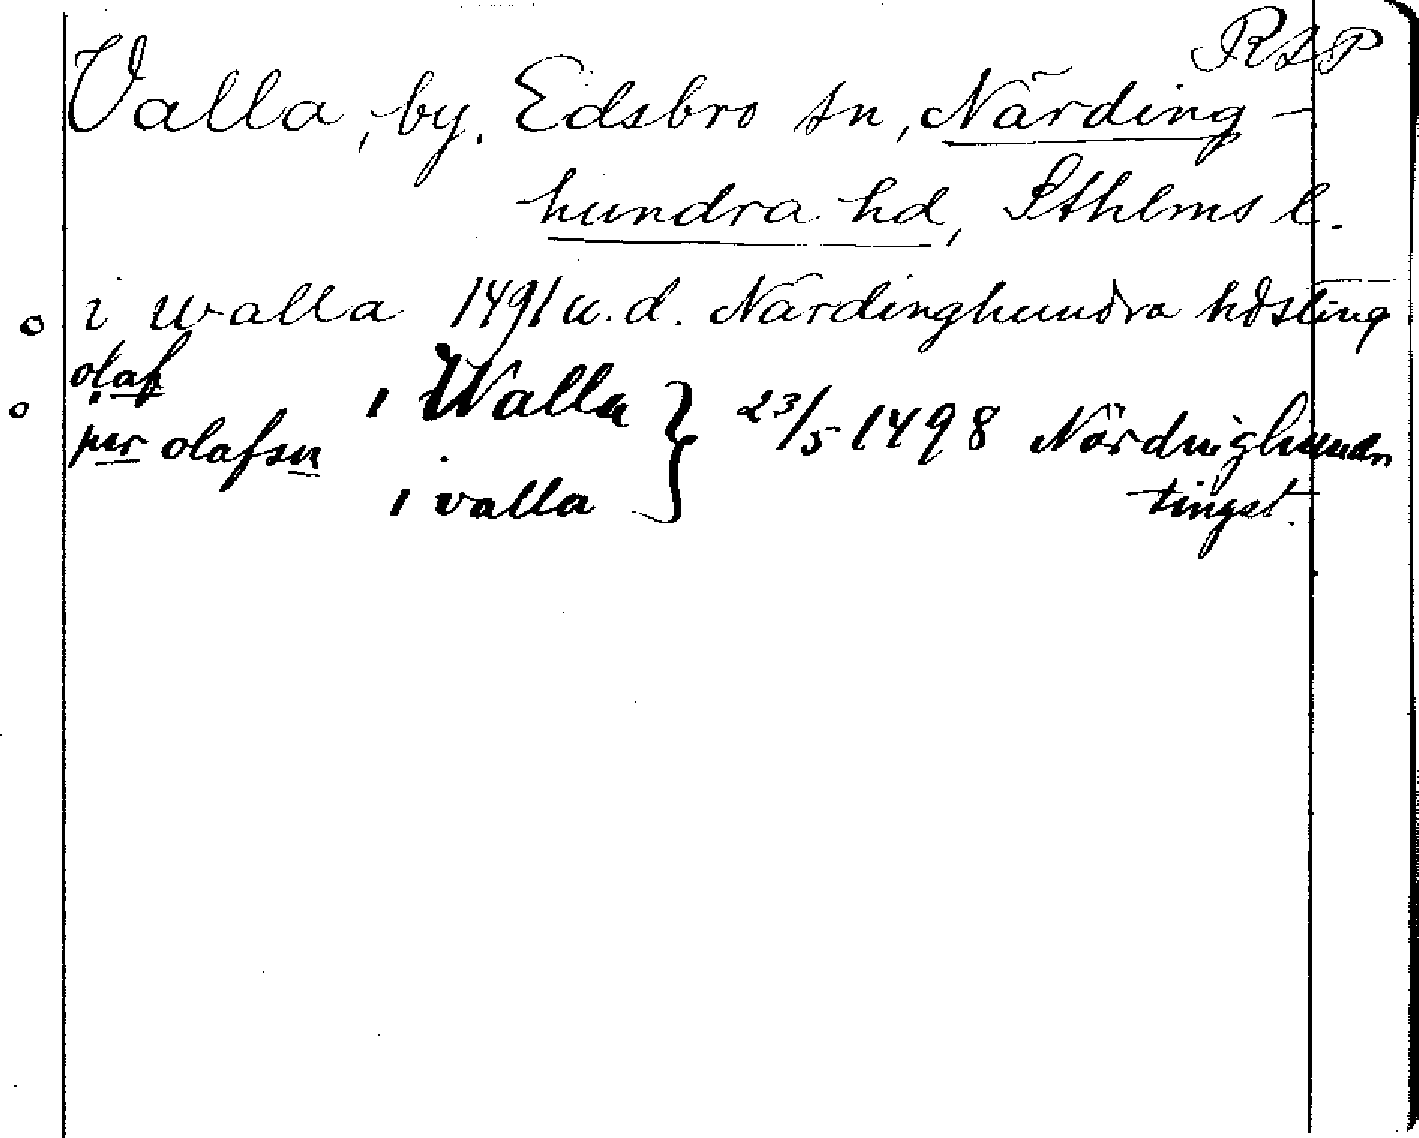 RAP
Valla, by. Edsbro sn, Närding-
hundra hd, Sthlms l.
o i walla 1491 u.d. Närdinghundra hdsting
olaf i Walla } 23/5 1498 Närdinghundr
o per olafsn i valla tingst.